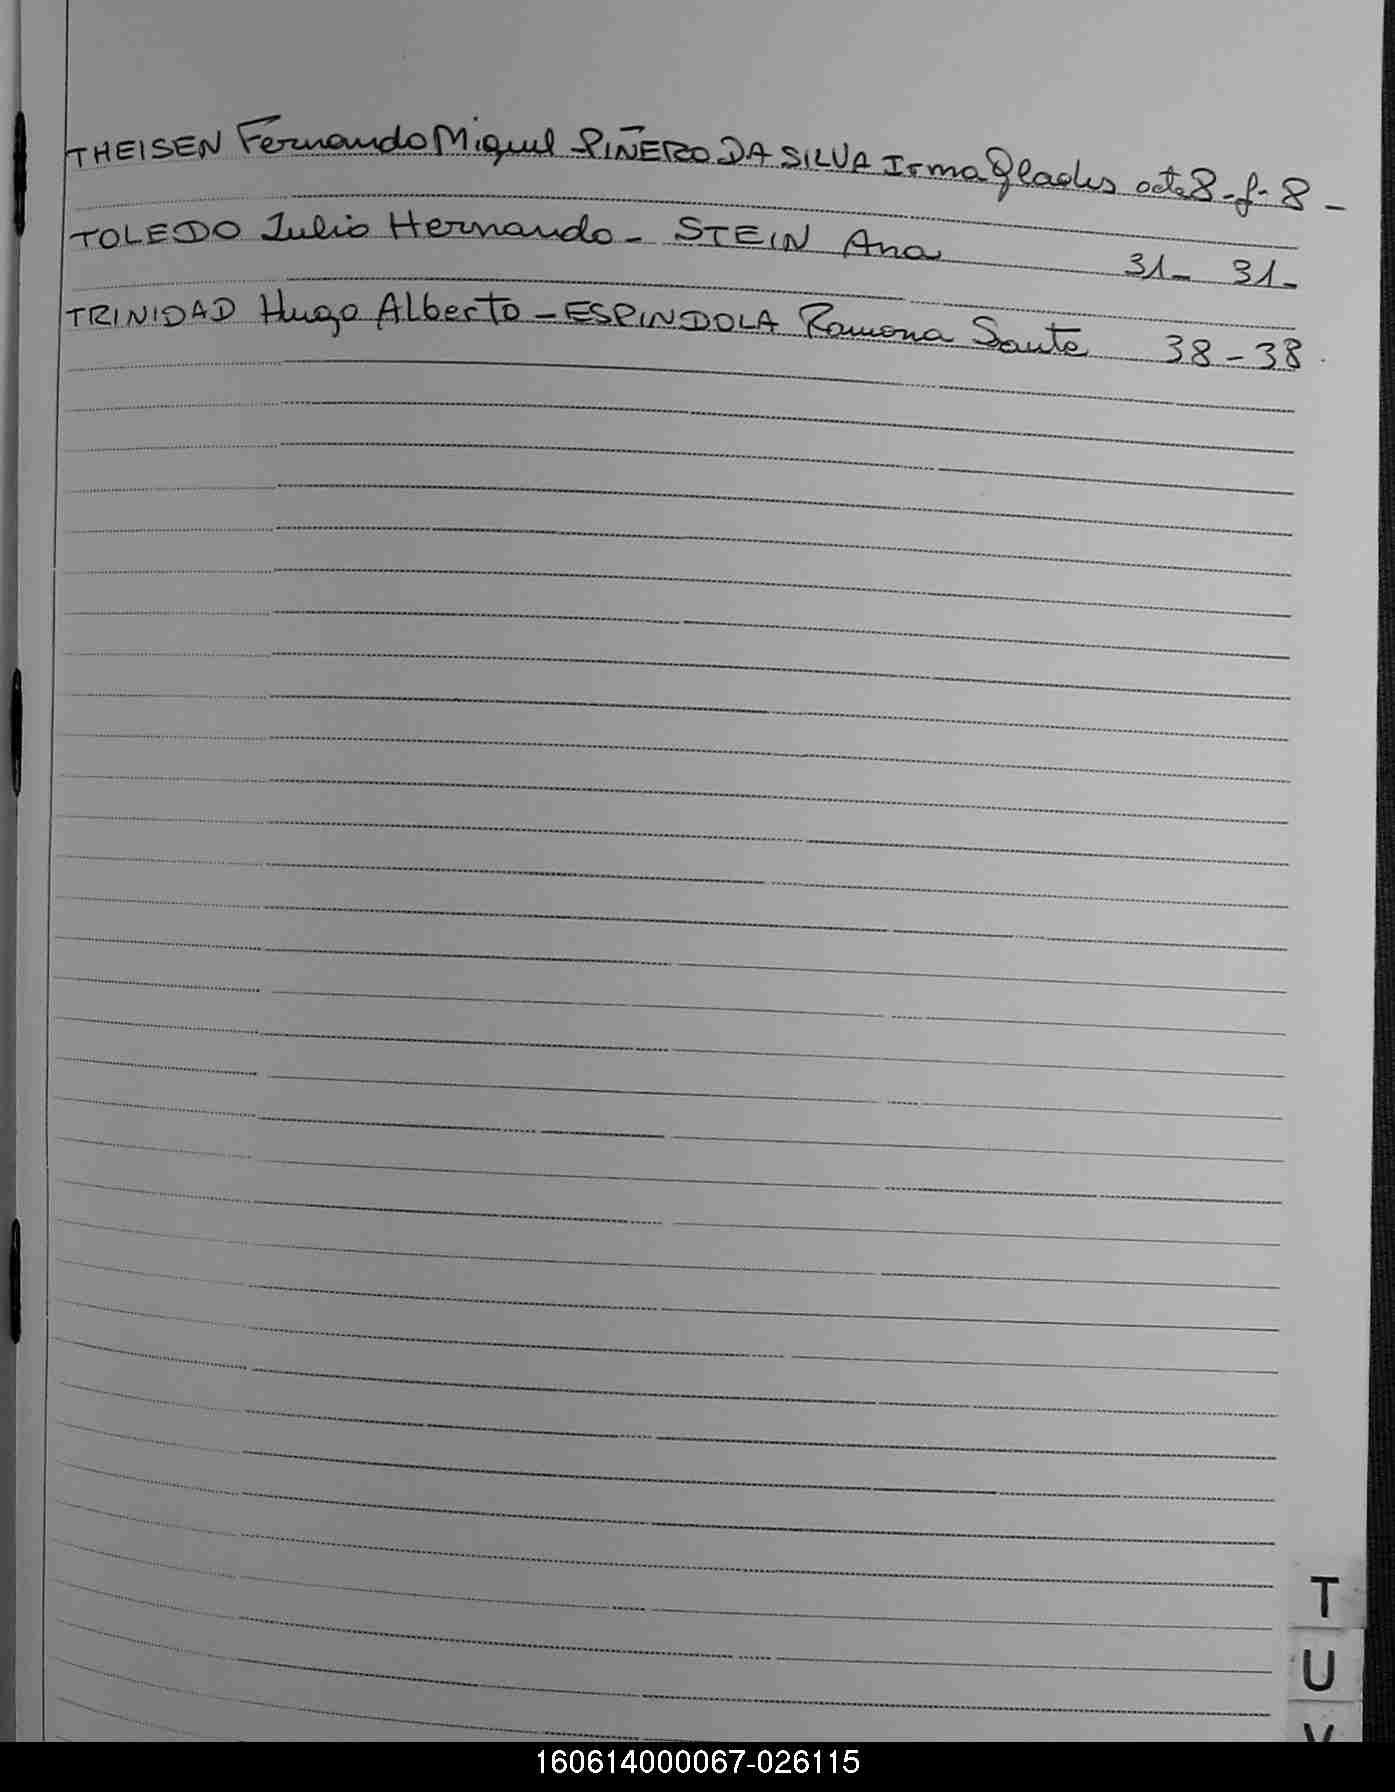 THEISEN Fernando Miguel PIÑERO DA SILVA Irma Glades acta 8-f-8-
TOLEDO Julio Hernando - STEIN Ana 31- 31-
TRINIDAD Hugo Alberto - ESPINDOLA Ramona Santa 38-38
T
U
V
160614000067-026115